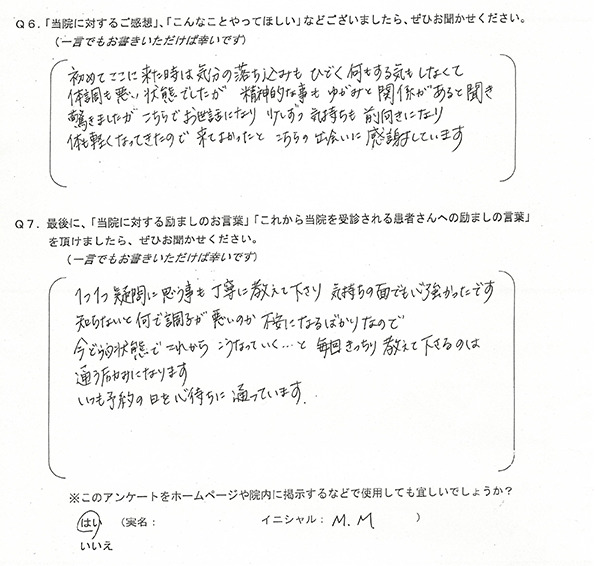 Q6.「当院に対するご感想」、「こんなことやってほしい」などございましたら、ぜひお聞かせください。
（一言でもお書きいただけば幸いです）
初めてここに来た時は気分の落ち込みも ひどく何もする気もしなくて
体調も悪い状態でしたが 精神的な事も ゆがみと関係があると聞き
驚きましたが こちらでお世話になり 少しずつ 気持ちも 前向きになり
体も軽くなってきたので 来てよかったと こちらの出会いに 感謝しています
Q7. 最後に、「当院に対する励ましのお言葉」「これから当院を受診される患者さんへの励ましの言葉」
を頂けましたら、ぜひお聞かせください。
（一言でもお書きいただけば幸いです）
1つ1つ 疑問に思う事も 丁寧に教えて下さり 気持ちの面でも心強かったです
知らないと何で調子が悪いのか 不安になるばかりなので
今どういう状態で これから こうなっていく…と 毎回きっちり 教えて下さるのは
通う励みになります
いつも予約の日を心待ちに 通っています.
※このアンケートをホームページや院内に掲示するなどで使用しても宜しいでしょうか？
はい （実名： イニシャル： M.M ）
いいえ